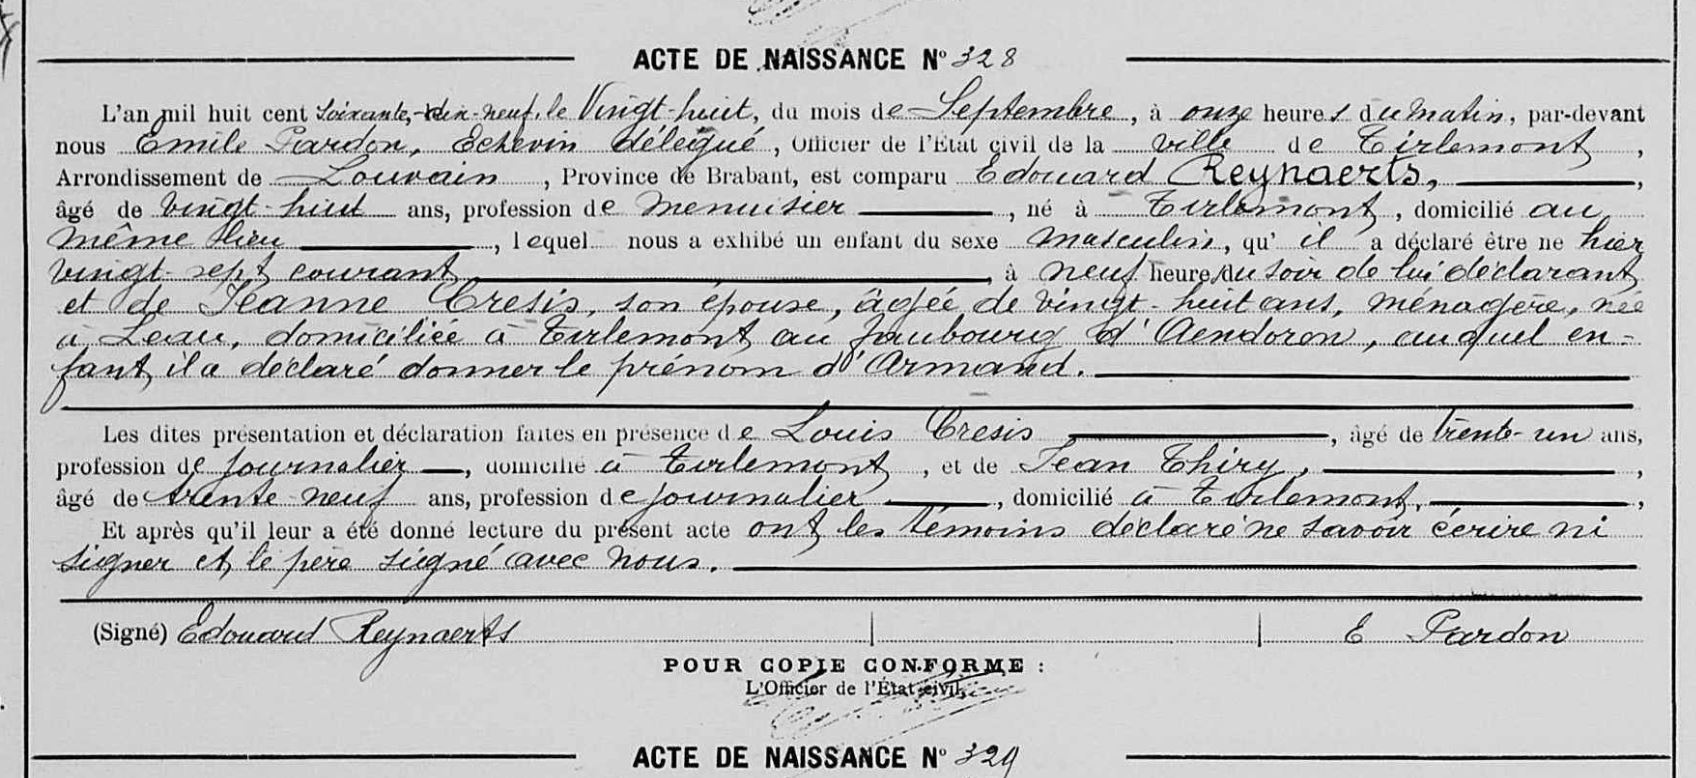 ACTE DE NAISSANCE N° 328
L'an mil huit cent soixante-dix-neuf, le Vingt-huit, du mois de Septembre, à onze heures du matin, par-devant
nous Emile Pardon, Echevin délégué, Officier de l'État civil de la ville de Tirlemont,
Arrondissement de Louvain, Province de Brabant, est comparu Edouard Reynaerts,
âgé de vingt-huit ans, profession de menuisier, né à Tirlemont, domicilié au
même lieu, lequel nous a exhibé un enfant du sexe masculin, qu'il a déclaré être né hier
vingt-sept courant à neuf heures du soir de lui déclarant
et de Jeanne Cresis, son épouse, âgée de vingt-huit ans, ménagère, née
à Leau, domiciliée à Tirlemont au faubourg d'Aendoren, auquel en-
fant il a déclaré donner le prénom d'Armand.
Les dites présentation et déclaration faites en présence de Louis Cresis, âgé de trente-un ans,
profession de journalier, domicilié à Tirlemont, et de Jean Thiry,
âgé de trente-neuf ans, profession de journalier, domicilié à Tirlemont,
Et après qu'il leur a été donné lecture du présent acte ont les témoins déclaré ne savoir écrire ni
signer et le père signé avec nous.
(Signé) Edouard Reynaerts | | E Pardon
POUR COPIE CONFORME :
L'Officier de l'État civil,
ACTE DE NAISSANCE N° 329